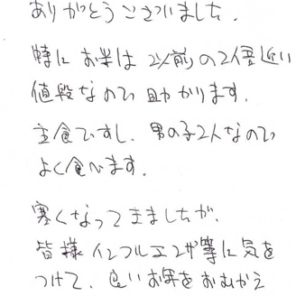 ありがとうございました。
特にお米は以前の2倍近い
値段なので助かります。
主食ですし、男の子2人なので
よく食べます。
寒くなってきましたが、
皆様インフルエンザ等に気を
つけて、良いお年をおむかえ